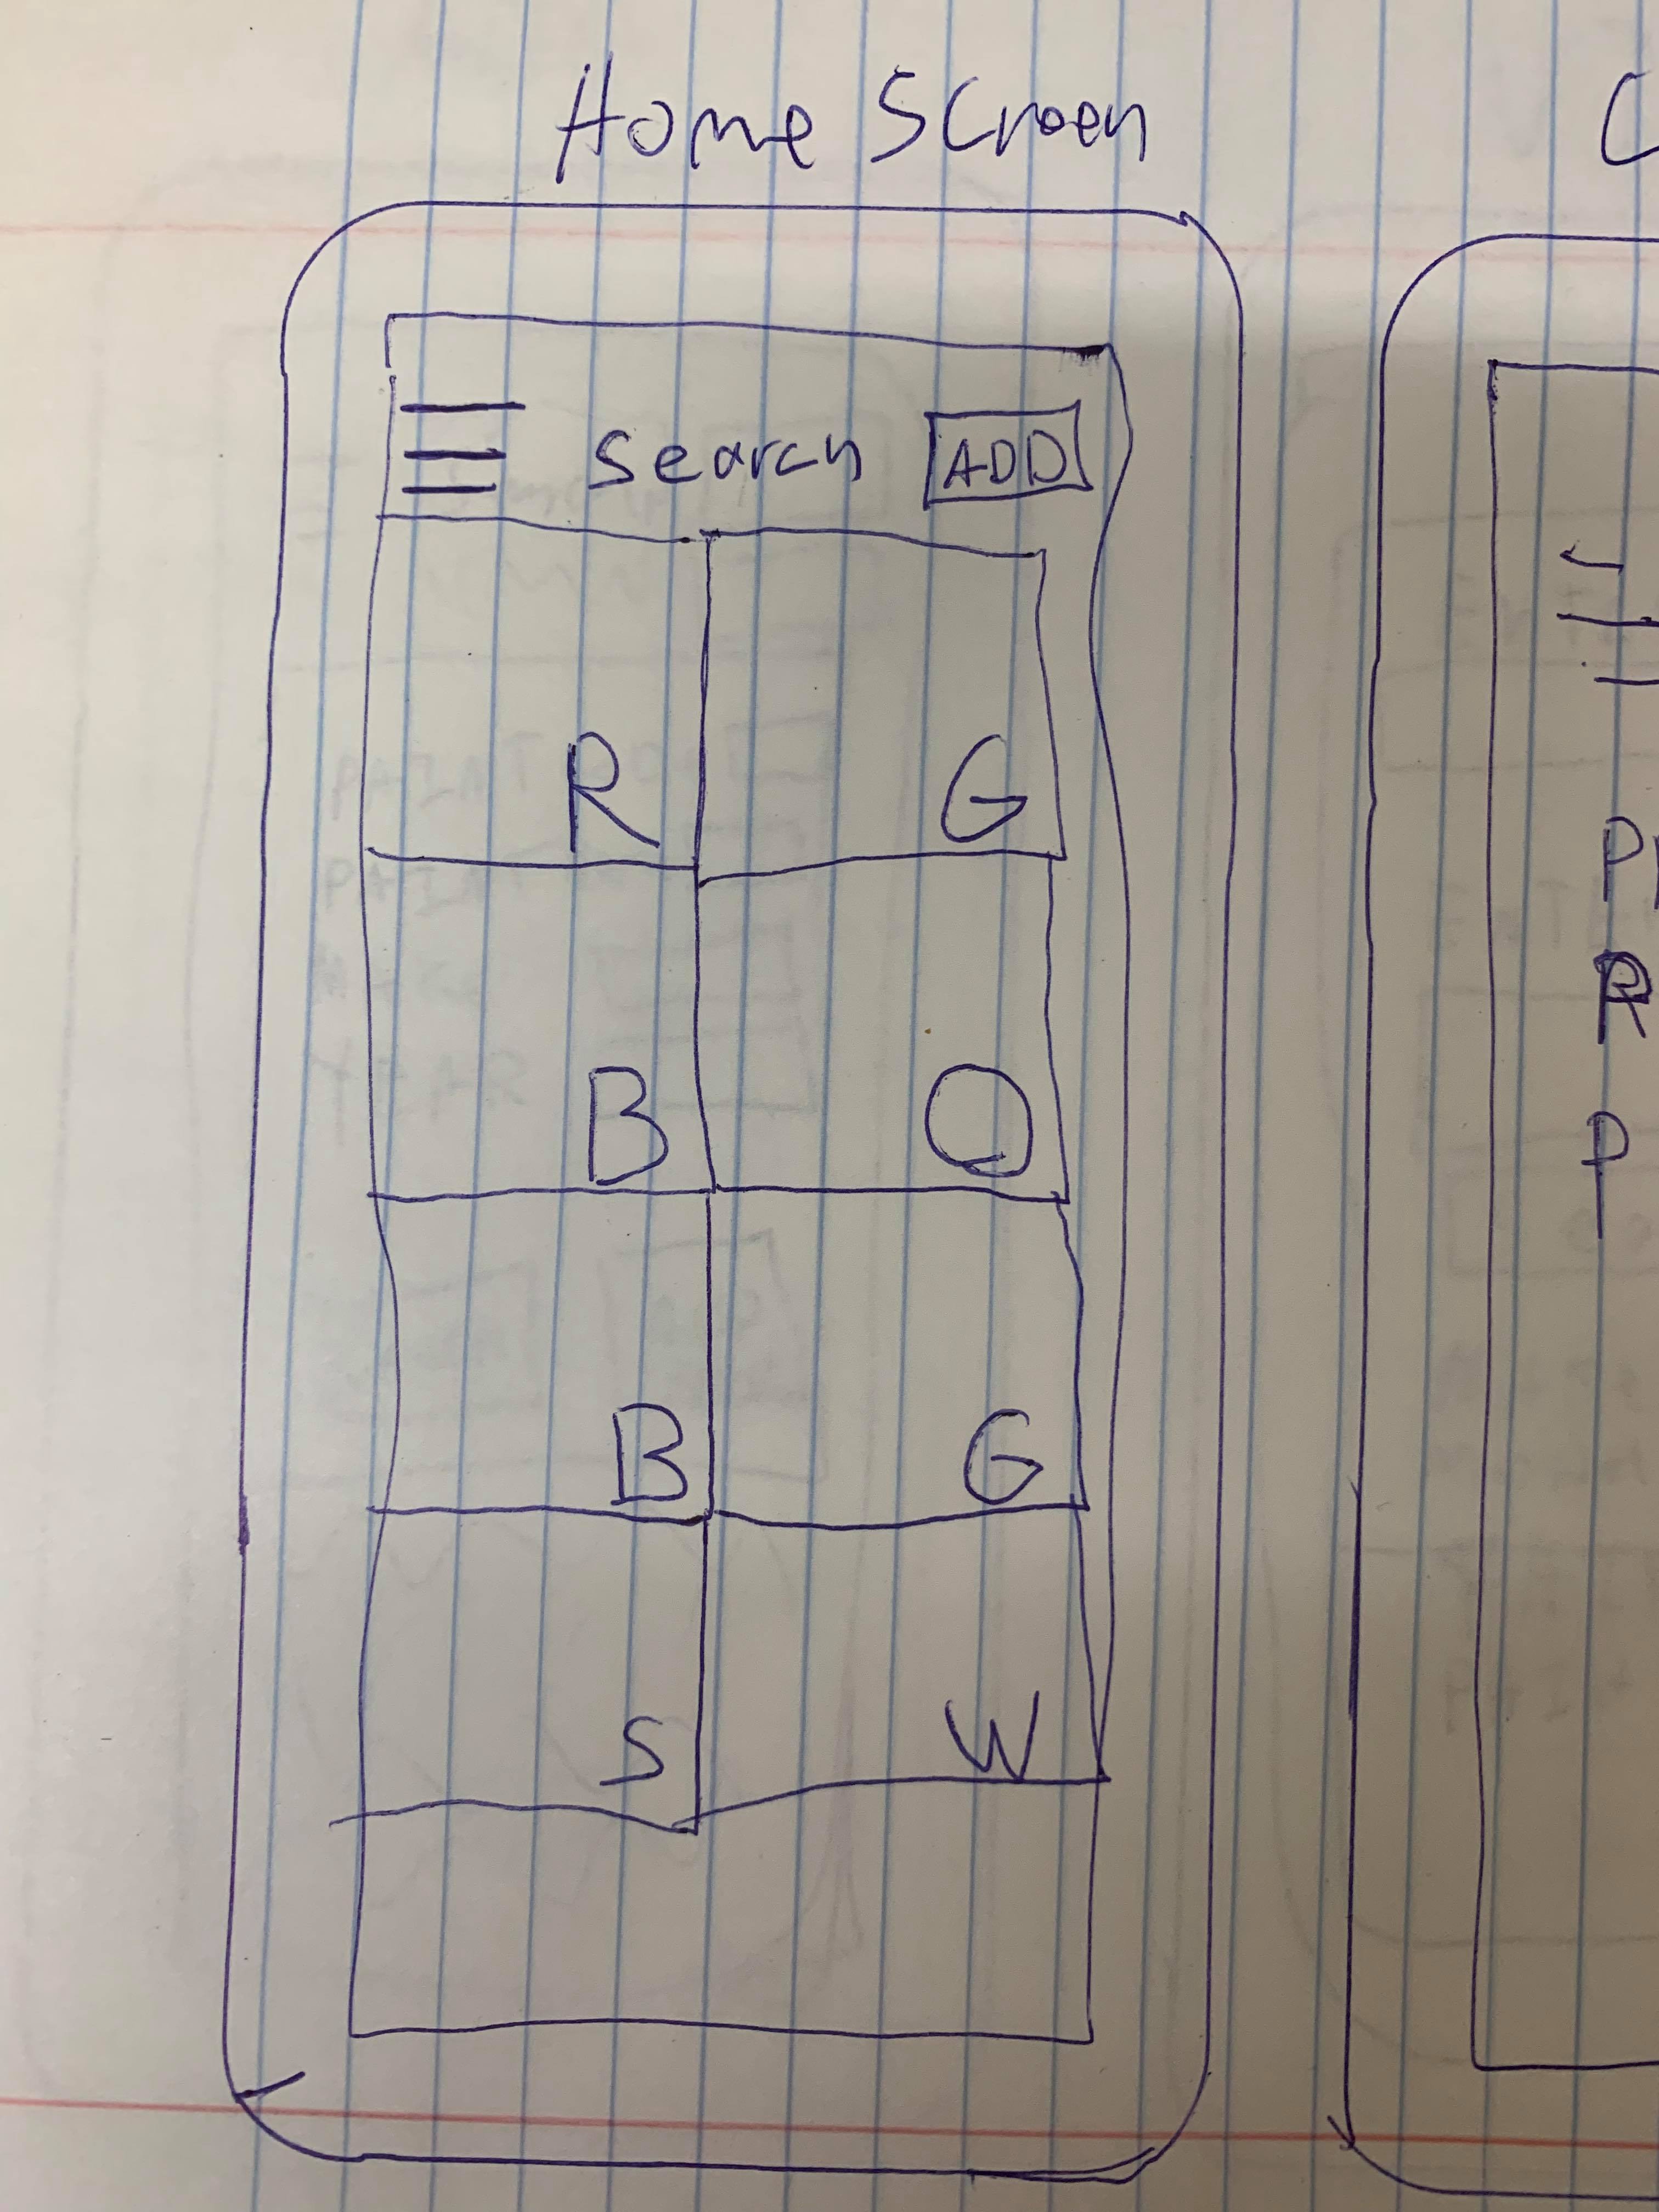 Home Screen
Search ADD
R G
B O
B G
S W
C
P
R
P